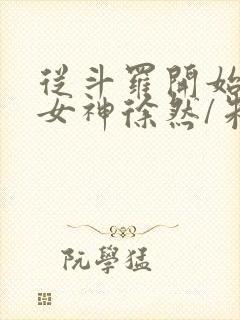 從斗羅開始
女神徐然/朱
阮學猛